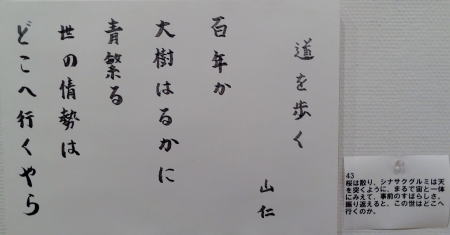 道を歩く
百年か
大樹はるかに
青繁る
世の情勢は
どこへ行くやら
山仁
43
桜は散り、シナサクグルミは天
を突くように、まるで宙と一体
にみえて、事前のすばらしさ。
振り返えると、この世はどこへ
行くのか。